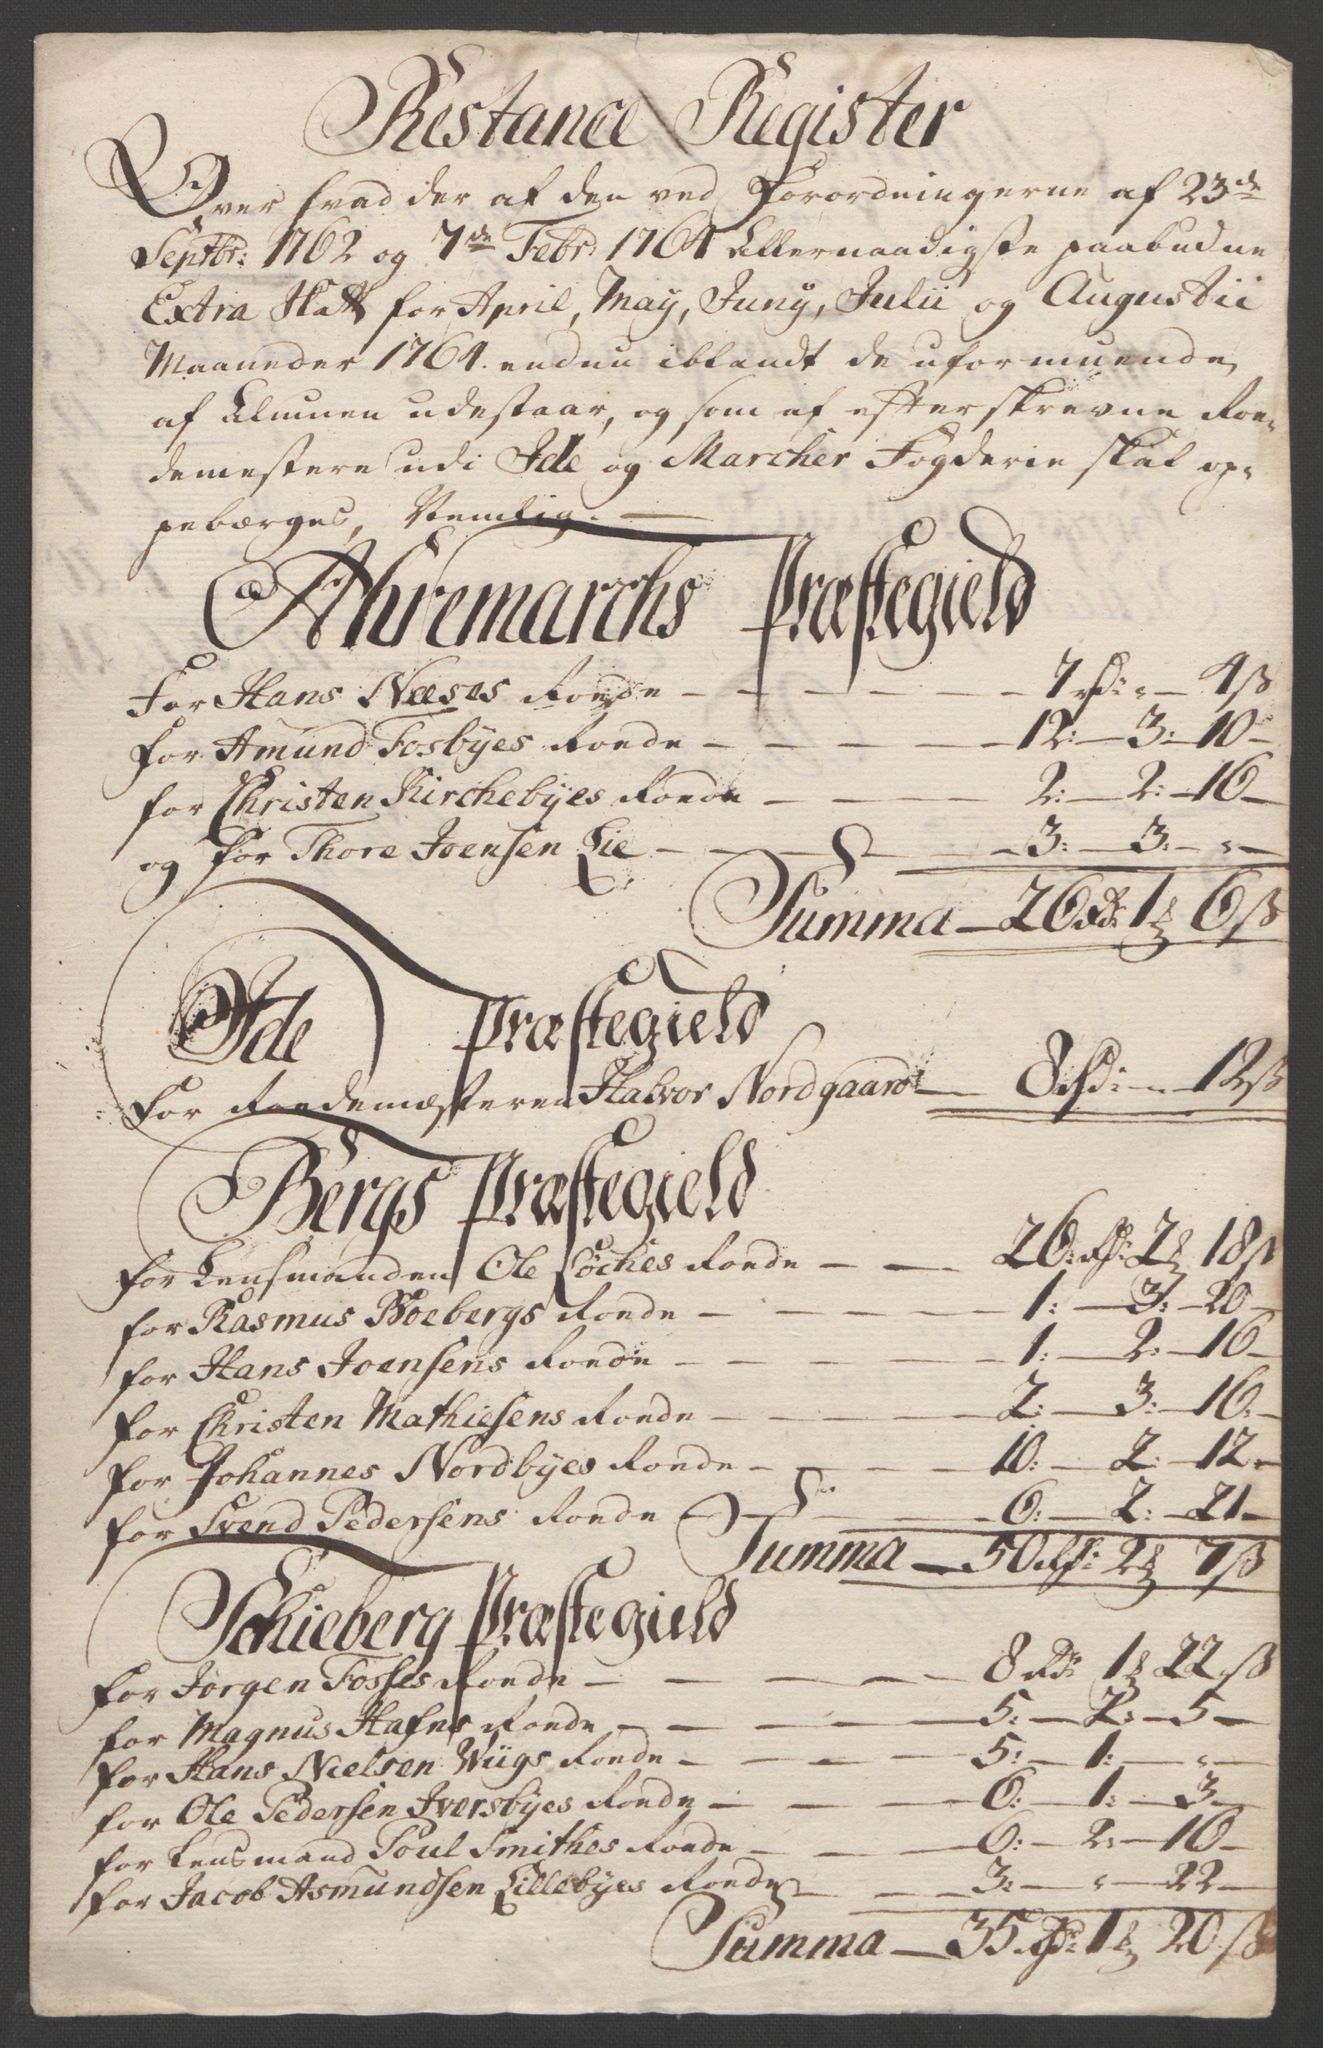 Restance Register
Over hvad der af den ved Forordningerne af 23de
Septbr: 1762 og 7de Febr: 1764 Allernaadigste paabudne
Extra Skatt for April, May, Juny, Julii og Augustii
Maaneder 1764. endnu iblandt de uformuende
af Almuen udestaar, og som af efterskrevne Roe-
demestere udi Ide og Marcher Fogderie skal op-
pebærges, Nemlig. —
Ahremarchs Præstegield
For Hans Neeses Roede — — — 7 rd: " — 4 ß
for Amund Fosbyes Roede — — — 12: — 3: — 10 —
for Christen Kirchebyes Roede — — — 2: — 2: — 16 —
og for Thore Joensen Lie — — — 3: — 3: — " —
Summa — 26 Rd: 1 ₰ 6 ß
Ide Præstegield
for Roedemesteren Halvor Nordgaard — 8 Rd: — 12 ß
Bergs Præstegield
for Lensmanden Ole Löches Roede — — 26: Rd: 2 ₰ 18 ß
for Rasmus Boebergs Roede — — — 1: — 3: — 20 —
for Hans Joensens Roede — — — 1: — 2: — 16 —
for Christen Mathiesens Roede — — — 2: — 3: — 16: —
for Johannes Nordbyes Roede — — — 10: — 2: — 12 —
for Svend Pedersens Roede — — — 6: — 2: — 21 —
Summa — 50 Rd: 2 ₰ 7 ß
Schieberg Præstegield
for Jörgen Fosses Roede — — — 8 Rd: 1 ₰ 22 ß
for Magnus Hafns Roede — — — 5: — 2: — 5 —
for Hans Nielsen Wiigs Roede — — — 5: — 1: — " —
for Ole Pedersen Iversbyes Roede — — — 6: — 1: — 3 —
for Lensmand Poul Smithes Roede — — — 6: — 2: — 16 —
for Jacob Asmundsen Lillebyes Roede — — 3: — " — 22 —
Summa — 35 Rd: 1 ₰ 20 ß